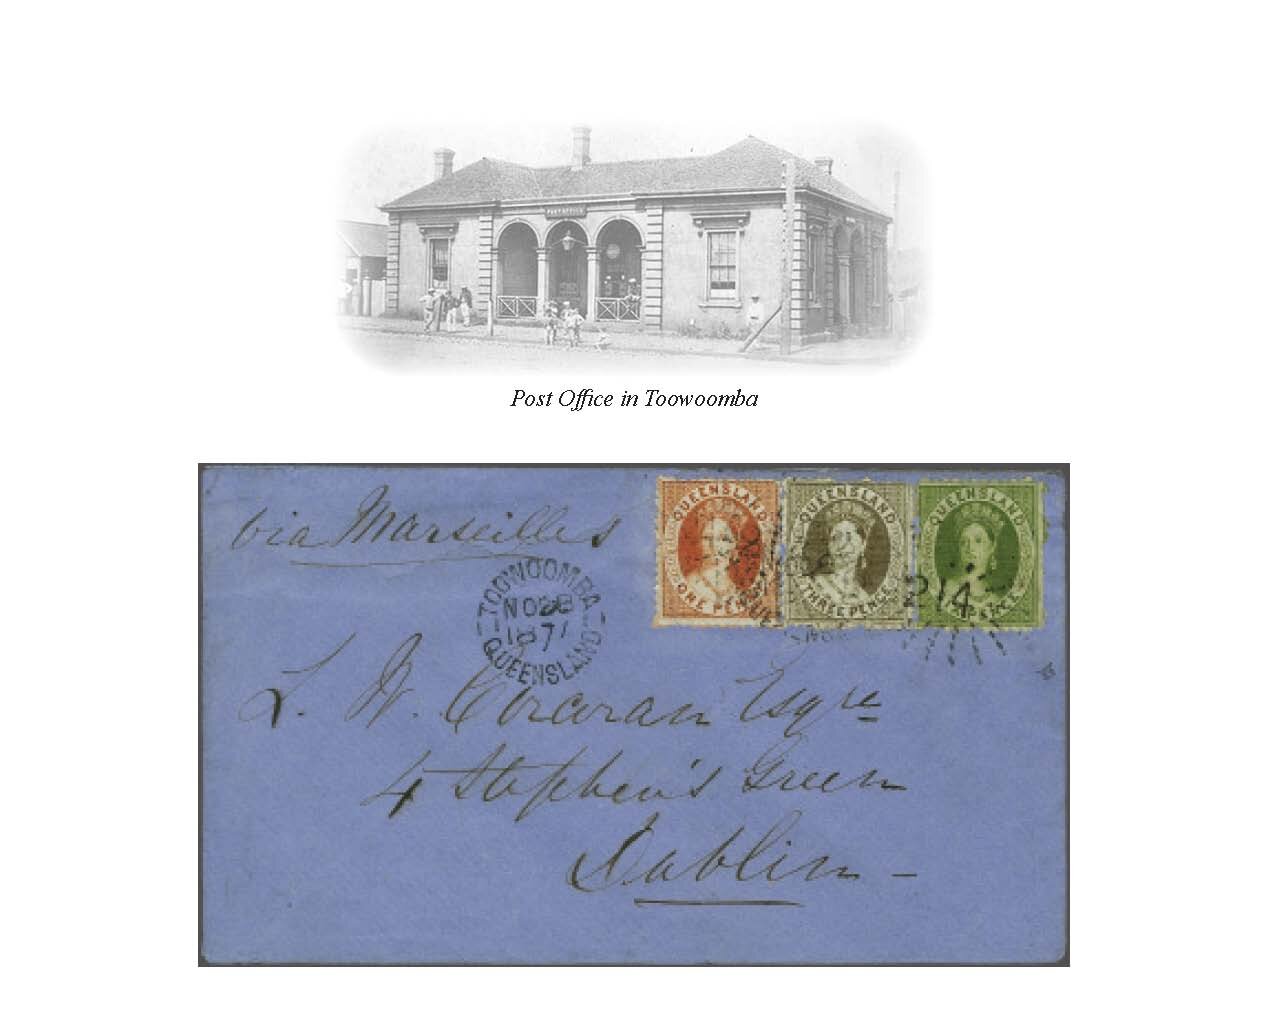 POST OFFICE
Post Office in Toowoomba
via Marseilles
QUEENSLAND
ONE PENNY
QUEENSLAND
THREE PENCE
QUEENSLAND
214
TOOWOOMBA
NO 28
1871
QUEENSLAND
L. W. Corcoran Esqre
4 Stephen's Green
Dublin -